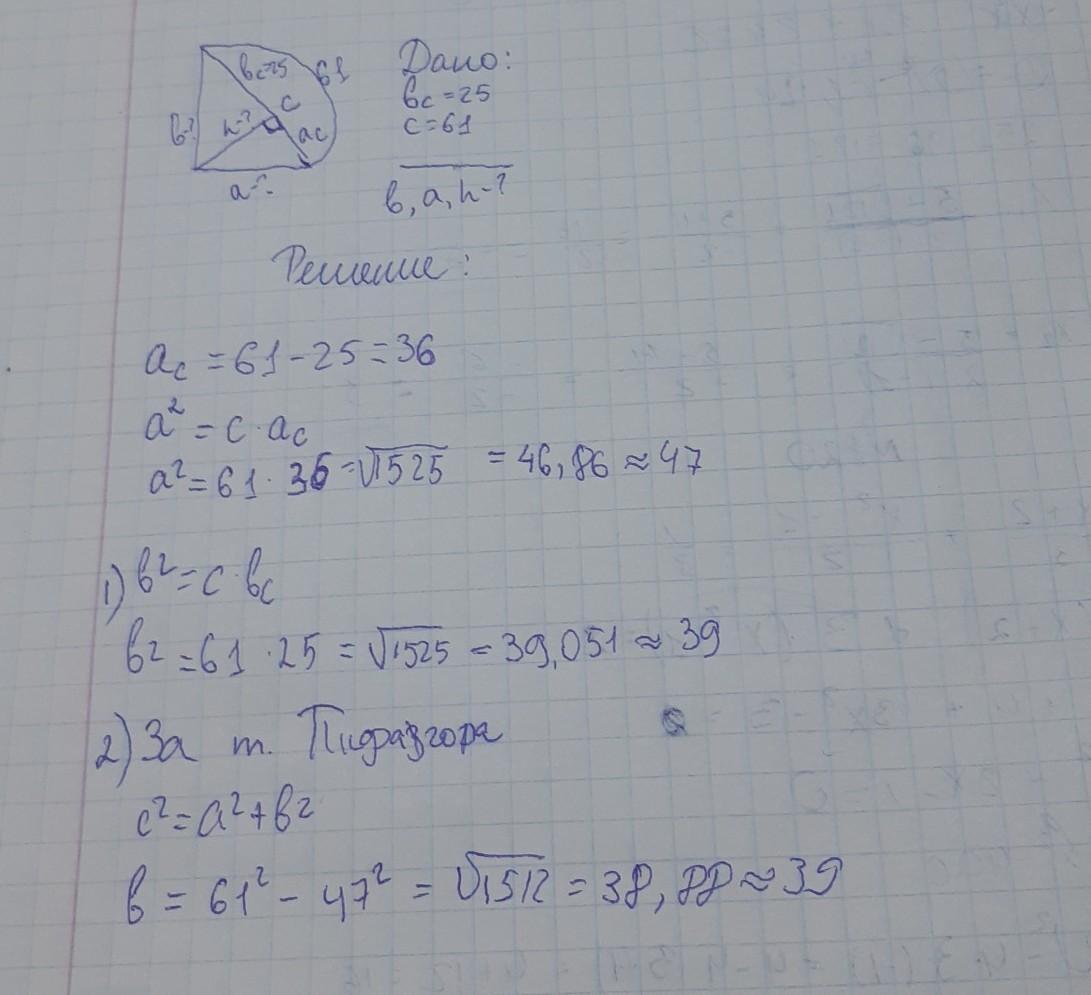 bc=25 61
c
в-? h-? ac
a-?
Дано:
вc=25
c=61
в, a, h-?
Решение:
ac = 61-25=36
a² = c · ac
a² = 61 · 36 = √1525 = 46,86 ≈ 47
1) в² = c · вc
в² = 61 · 25 = √1525 = 39,051 ≈ 39
2) За т. Пифазгора
c² = a² + в²
в = 61² - 47² = √1512 = 38,88 ≈ 39